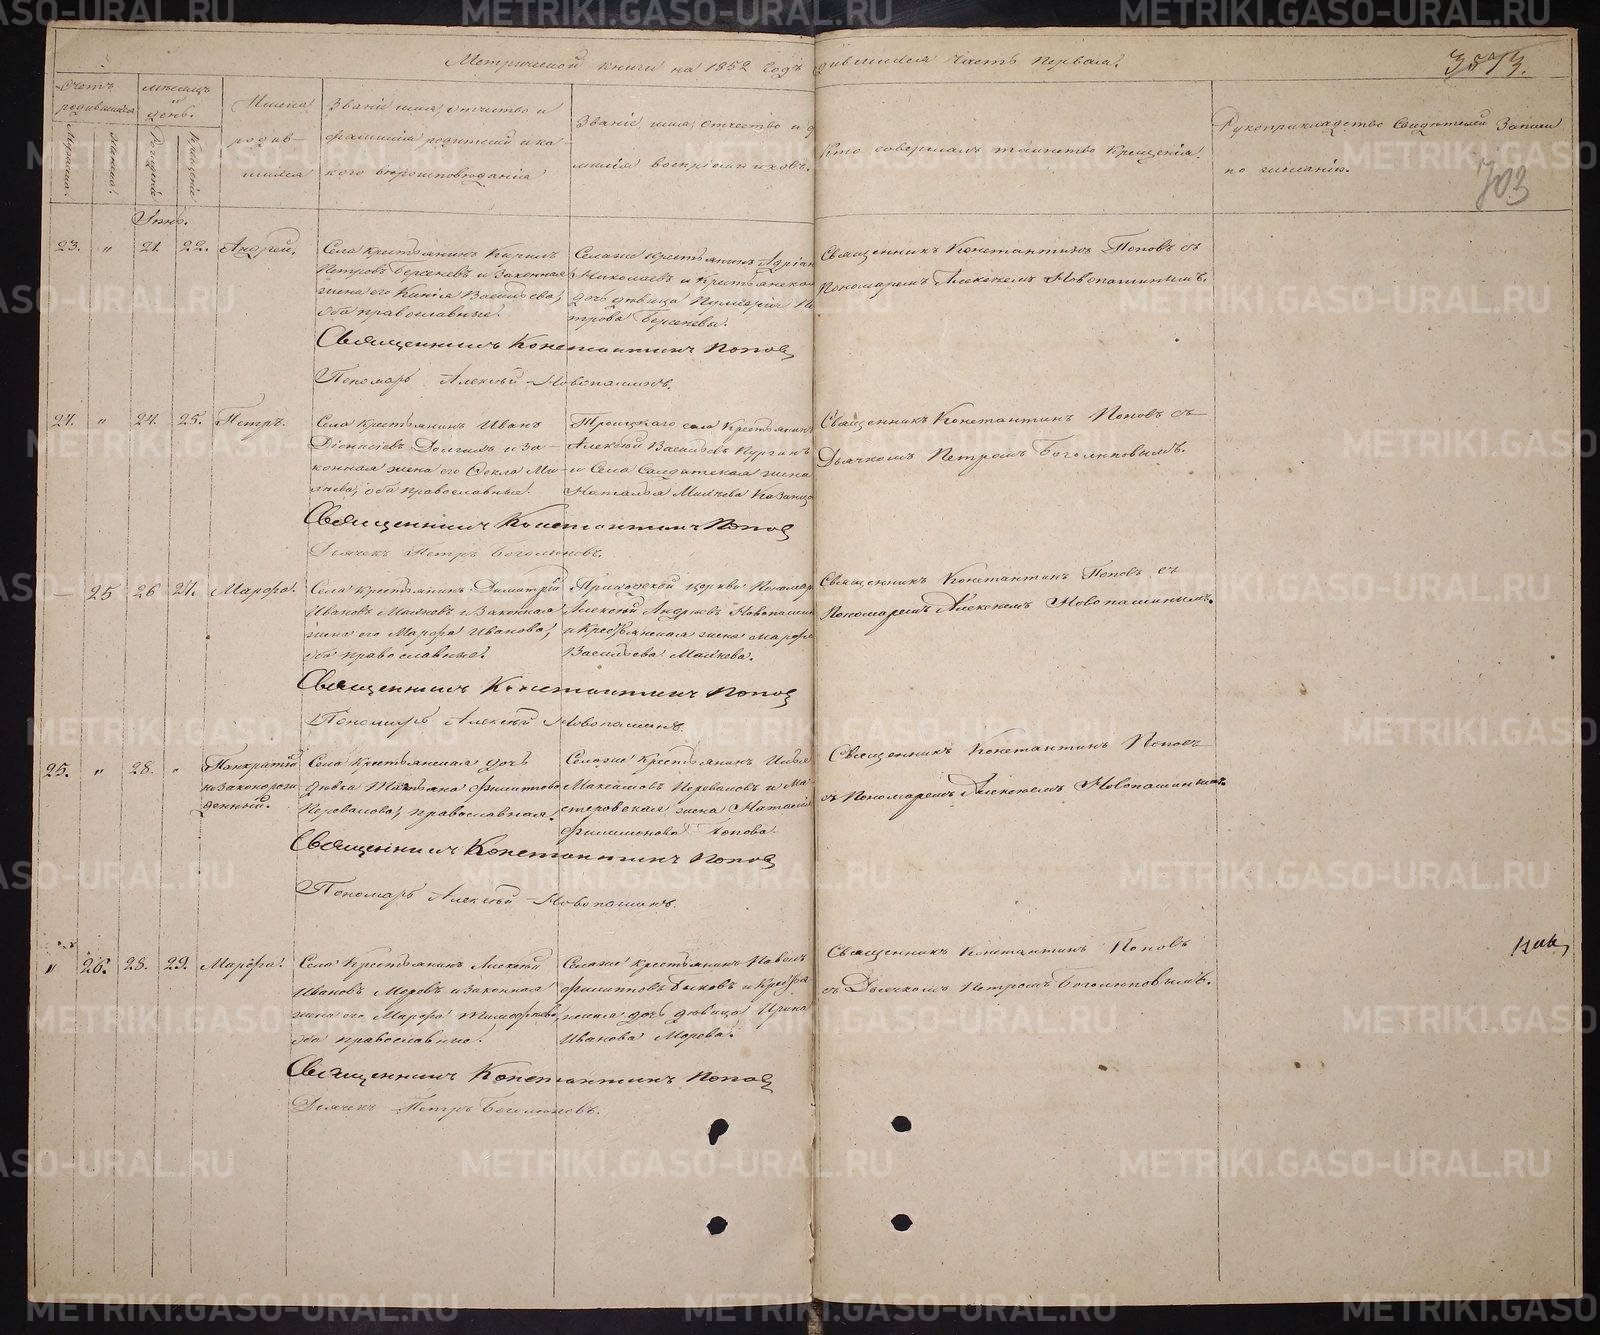 Метрической книги на 1852 годъ
дившихся Часть первая.
3573.
703
Счетъ родившихся
мѣсяцъ и день.
Имена родив-
шихся
Званіе имя, отчество и
фамилія родителей и ка-
кого вѣроисповѣданія
Званіе, имя, отчество и ф
милія воспріемниковъ.
Кто совершалъ таинство Крещенія.
Рукоприкладство Свидѣтелей Записи
по желанію.
Мужска.
Женска.
Рожденіе
Крещеніе
23. " 21. 22. Андрей.
Села крестьянинъ Кирилъ
Петровъ Берсеневъ и Законная
жена его Васильева,
оба православные.
Селаже Крестьянинъ Адріан
Николаевъ и Крестьянская
дочь дѣвица Пе
трова Берсенева.
Священникъ Константинъ Поповъ съ
Пономаремъ Алексѣемъ Новопашинымъ.
Священникъ Константинъ Попов
Пономарь Алексѣй Новопашинъ.
24. " 24. 25. Петръ.
Села Крестьянинъ Иванъ
Діонисіевъ и За-
конная жена его Ѳекла
оба православные.
Троицкаго села Крестьянинъ
Алексѣй Васильевъ
и Села Солдатская жена
Наталья
Священникъ Константинъ Поповъ съ
Дьячкомъ Петромъ Боголюповымъ.
Священникъ Константинъ Попов
Дьячекъ Петръ Боголюповъ.
— 25 26 27. Марѳа.
Села Крестьянинъ Димитрій
Ивановъ и Законная
жена его Марѳа Иванова,
оба православные.
Приходской церкви Пономар
Алексѣй Андреевъ Новопашин
и Крестьянская жена Марѳа
Васильева
Священникъ Константинъ Поповъ съ
Пономаремъ Алексѣемъ Новопашинымъ.
Священникъ Константинъ Попов
Пономарь Алексѣй Новопашинъ.
25. " 28. " Панкратій
незаконорож
денный.
Села Крестьянская дочь
дѣвка Татьяна Филиппова
Перевалова, православная.
Селаже Крестьянинъ Илья
Максимовъ Переваловъ и Ма-
стеровская жена
Филимонова Попова.
Священникъ Константинъ Поповъ
съ Пономаремъ Алексѣемъ Новопашинымъ.
Священникъ Константинъ Попов
Пономарь Алексѣй Новопашинъ.
" 26. 28. 29. Марѳа.
Села Крестьянинъ Алексѣй
Ивановъ Моровъ и законная
жена его Марѳа Тимоѳеева,
оба православные.
Селаже крестьянинъ Павелъ
Филипповъ Быковъ и Крестья
нская дочь дѣвица Ирина
Иванова Морова.
Священникъ Константинъ Поповъ
съ Дьячкомъ Петромъ Боголюповымъ.
Священникъ Константинъ Попов
Дьячекъ Петръ Боголюповъ.
METRIKI.GASO-URAL.RU